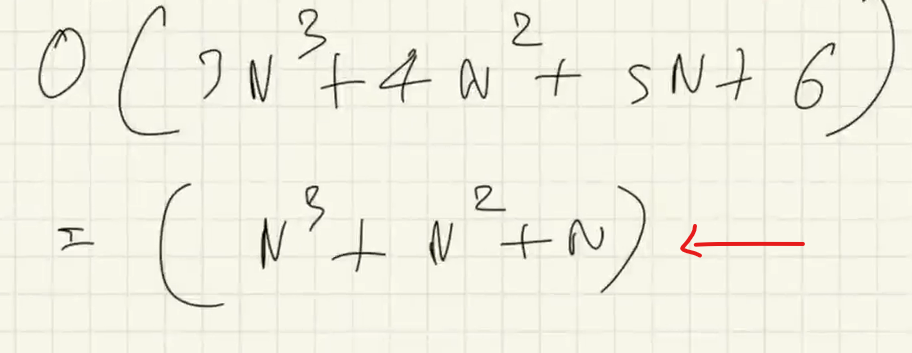 O(3N³+4N²+5N+6)
=(N³+N²+N)